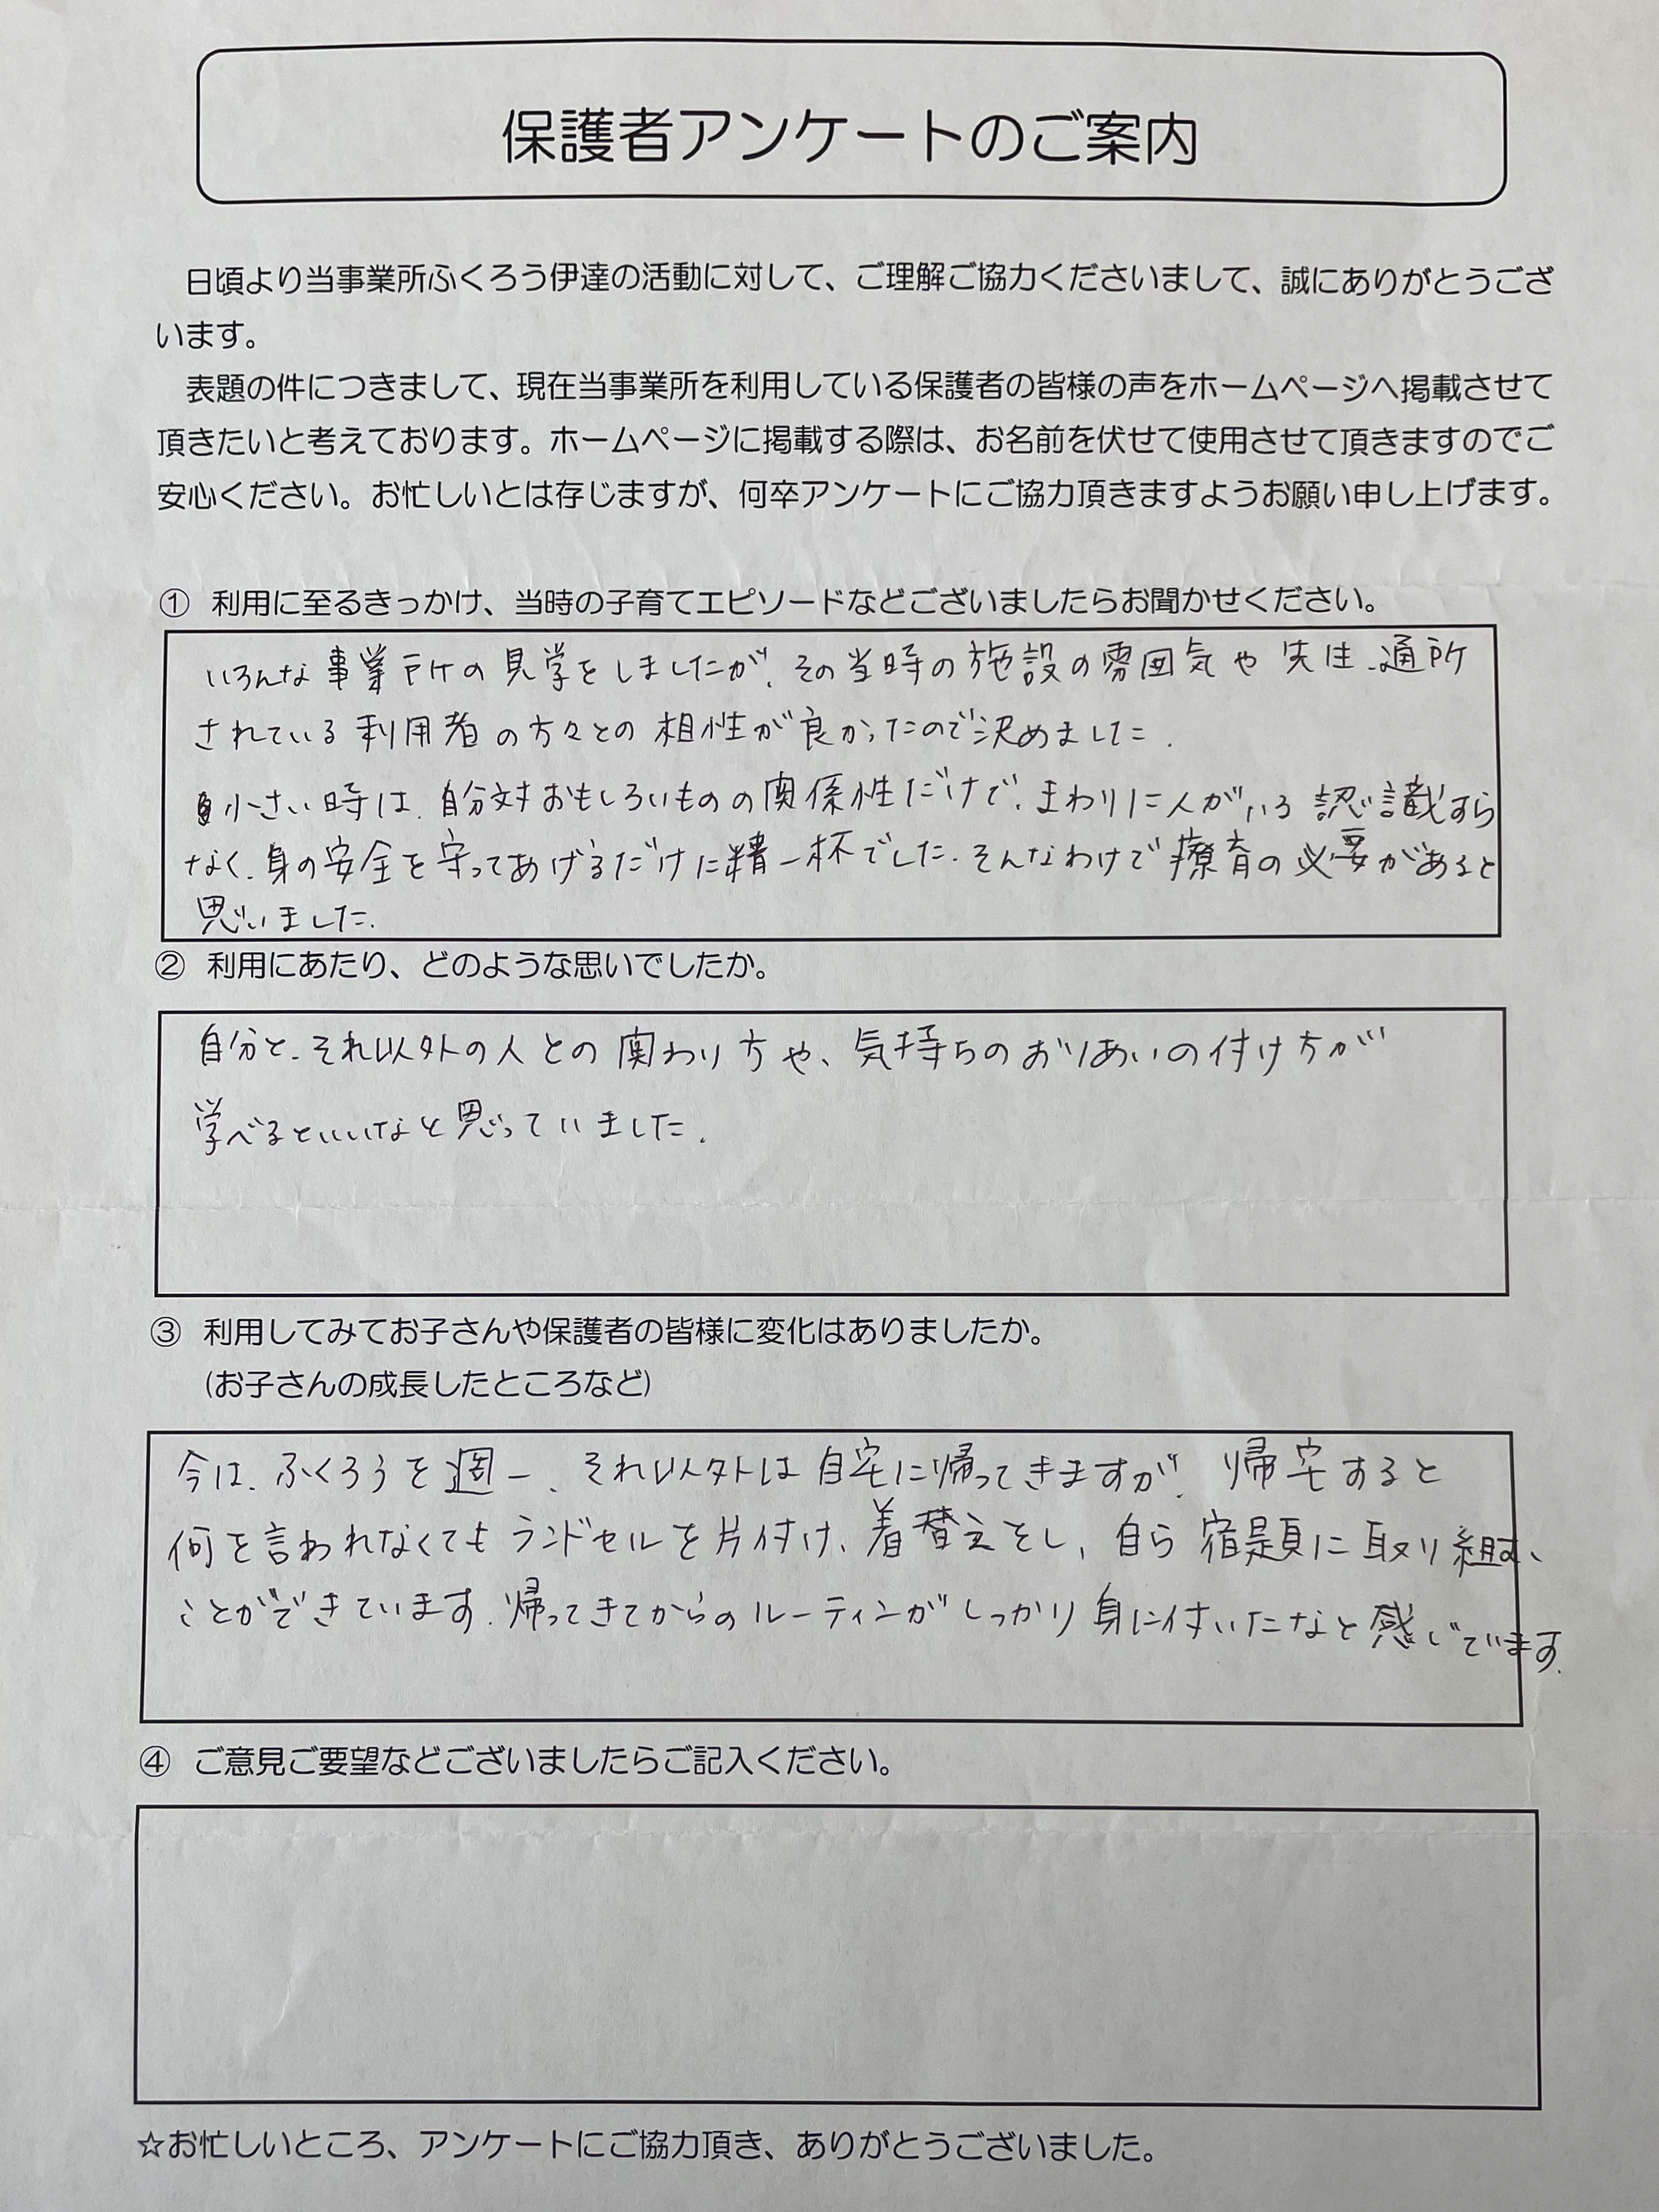 保護者アンケートのご案内
日頃より当事業所ふくろう伊達の活動に対して、ご理解ご協力くださいまして、誠にありがとうござ
います。
表題の件につきまして、現在当事業所を利用している保護者の皆様の声をホームページへ掲載させて
頂きたいと考えております。ホームページに掲載する際は、お名前を伏せて使用させて頂きますのでご
安心ください。お忙しいとは存じますが、何卒アンケートにご協力頂きますようお願い申し上げます。
① 利用に至るきっかけ、当時の子育てエピソードなどございましたらお聞かせください。
いろんな事業所の見学をしましたが、その当時の施設の雰囲気や先生、通所
されている利用者の方々との相性が良かったので決めました。
小さい時は、自分対おもしろいものの関係性だけで、まわりに人がいる認識すら
なく、身の安全を守ってあげるだけに精一杯でした。そんなわけで療育の必要があると
思いました。
② 利用にあたり、どのような思いでしたか。
自分と、それ以外の人との関わり方や、気持ちのおりあいの付け方が
学べるといいなと思っていました。
③ 利用してみてお子さんや保護者の皆様に変化はありましたか。
(お子さんの成長したところなど)
今は、ふくろうを週一、それ以外は自宅に帰ってきますが、帰宅すると
何を言われなくてもランドセルを片付け、着替えをし、自ら宿題に取り組む
ことができています。帰ってきてからのルーティンがしっかり身に付いたなと感じています。
④ ご意見ご要望などございましたらご記入ください。
☆お忙しいところ、アンケートにご協力頂き、ありがとうございました。